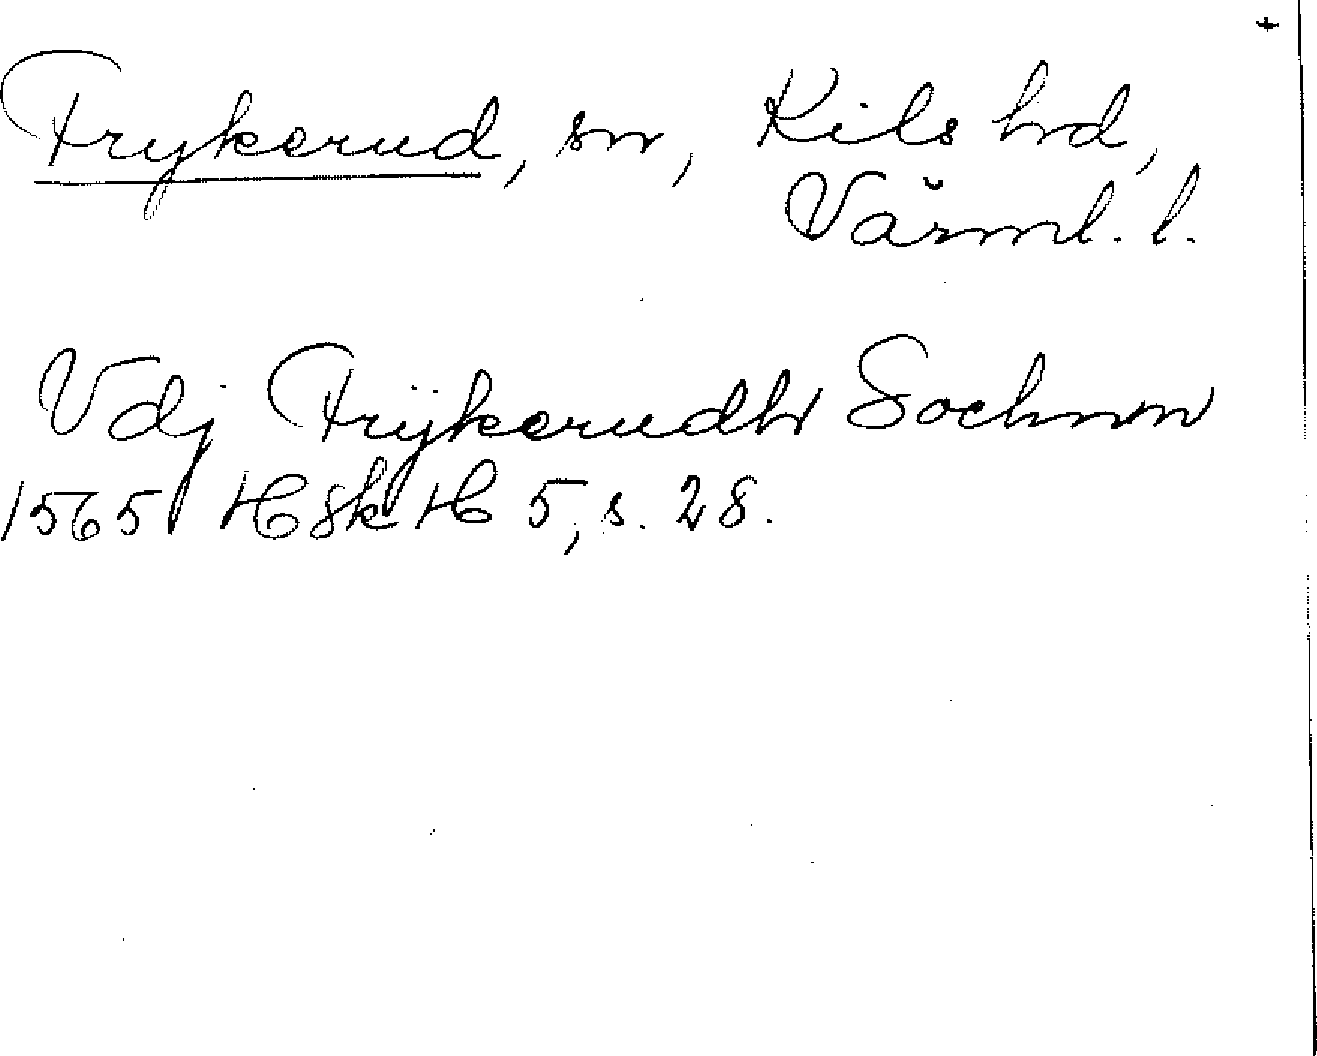 Frykerud, sn, Kils hd,
Värml. l.
Vdj Frÿkerudh Sochnn
1565 HSkH 5, s. 28.